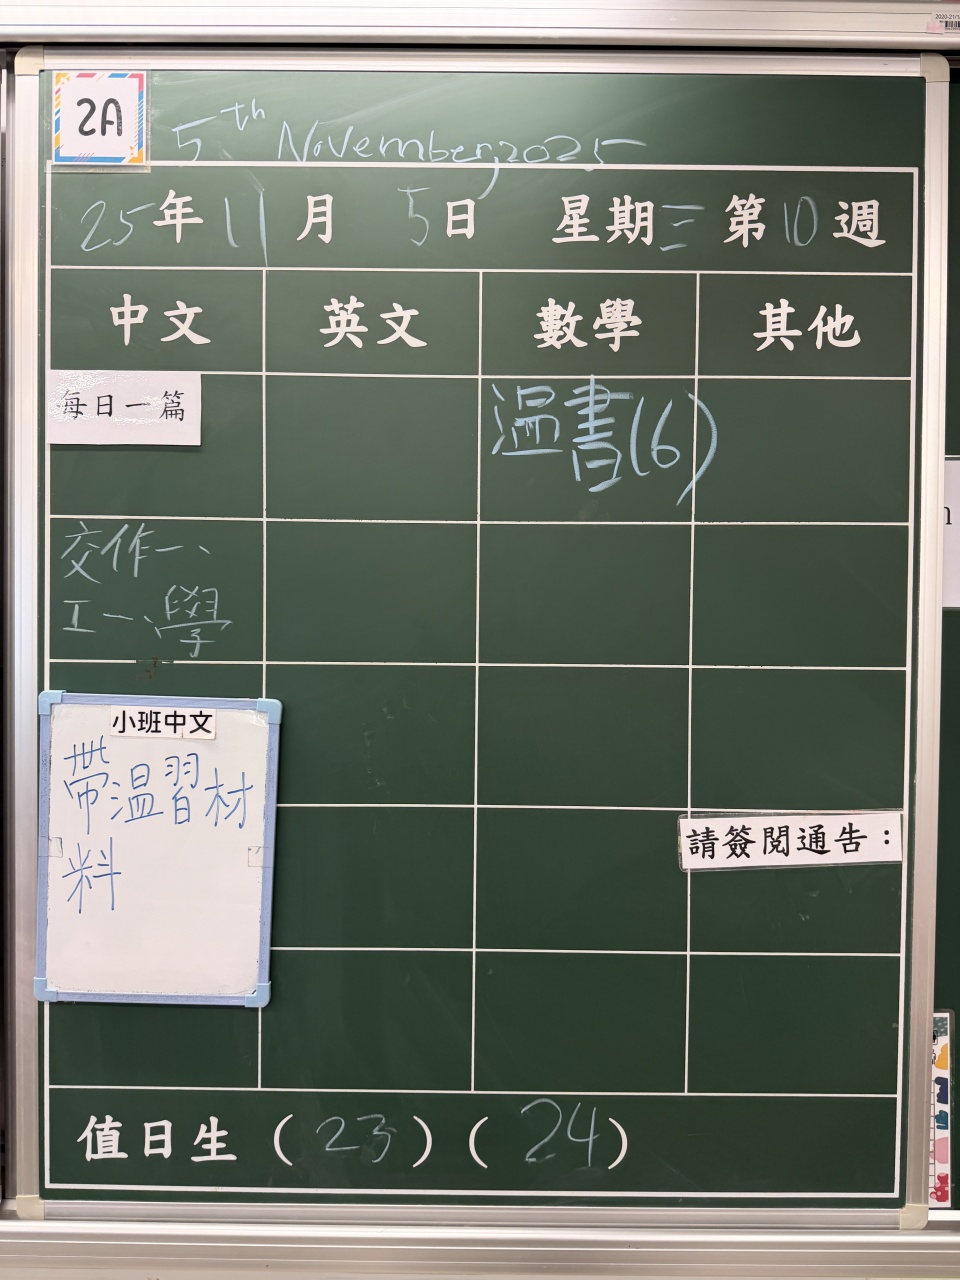 2A
5th November, 2025
25年11月5日 星期三 第10週
中文 英文 數學 其他
每日一篇
溫書(6)
交作一、
工一、學
小班中文
帶溫習材
料
請簽閱通告：
值日生（23）（24）